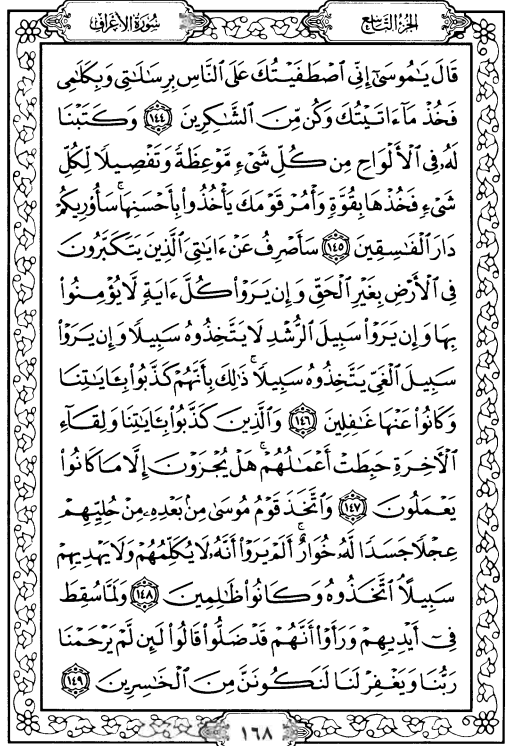 الجزء التاسع
سورة الأعراف
قَالَ يَٰمُوسَىٰٓ إِنِّي ٱصۡطَفَيۡتُكَ عَلَى ٱلنَّاسِ بِرِسَٰلَٰتِي وَبِكَلَٰمِي
فَخُذۡ مَآ ءَاتَيۡتُكَ وَكُن مِّنَ ٱلشَّٰكِرِينَ ١٤٤ وَكَتَبۡنَا
لَهُۥ فِي ٱلۡأَلۡوَاحِ مِن كُلِّ شَيۡءٖ مَّوۡعِظَةٗ وَتَفۡصِيلٗا لِّكُلِّ
شَيۡءٖ فَخُذۡهَا بِقُوَّةٖ وَأۡمُرۡ قَوۡمَكَ يَأۡخُذُواْ بِأَحۡسَنِهَاۚ سَأُوْرِيكُمۡ
دَارَ ٱلۡفَٰسِقِينَ ١٤٥ سَأَصۡرِفُ عَنۡ ءَايَٰتِيَ ٱلَّذِينَ يَتَكَبَّرُونَ
فِي ٱلۡأَرۡضِ بِغَيۡرِ ٱلۡحَقِّ وَإِن يَرَوۡاْ كُلَّ ءَايَةٖ لَّا يُؤۡمِنُواْ
بِهَا وَإِن يَرَوۡاْ سَبِيلَ ٱلرُّشۡدِ لَا يَتَّخِذُوهُ سَبِيلٗا وَإِن يَرَوۡاْ
سَبِيلَ ٱلۡغَيِّ يَتَّخِذُوهُ سَبِيلٗاۚ ذَٰلِكَ بِأَنَّهُمۡ كَذَّبُواْ بِـَٔايَٰتِنَا
وَكَانُواْ عَنۡهَا غَٰفِلِينَ ١٤٦ وَٱلَّذِينَ كَذَّبُواْ بِـَٔايَٰتِنَا وَلِقَآءِ
ٱلۡأٓخِرَةِ حَبِطَتۡ أَعۡمَٰلُهُمۡۚ هَلۡ يُجۡزَوۡنَ إِلَّا مَا كَانُواْ
يَعۡمَلُونَ ١٤٧ وَٱتَّخَذَ قَوۡمُ مُوسَىٰ مِنۢ بَعۡدِهِۦ مِنۡ حُلِيِّهِمۡ
عِجۡلٗا جَسَدٗا لَّهُۥ خُوَارٌۚ أَلَمۡ يَرَوۡاْ أَنَّهُۥ لَا يُكَلِّمُهُمۡ وَلَا يَهۡدِيهِمۡ
سَبِيلًاۘ ٱتَّخَذُوهُ وَكَانُواْ ظَٰلِمِينَ ١٤٨ وَلَمَّا سُقِطَ
فِيٓ أَيۡدِيهِمۡ وَرَأَوۡاْ أَنَّهُمۡ قَدۡ ضَلُّواْ قَالُواْ لَئِن لَّمۡ يَرۡحَمۡنَا
رَبُّنَا وَيَغۡفِرۡ لَنَا لَنَكُونَنَّ مِنَ ٱلۡخَٰسِرِينَ ١٤٩
١٦٨